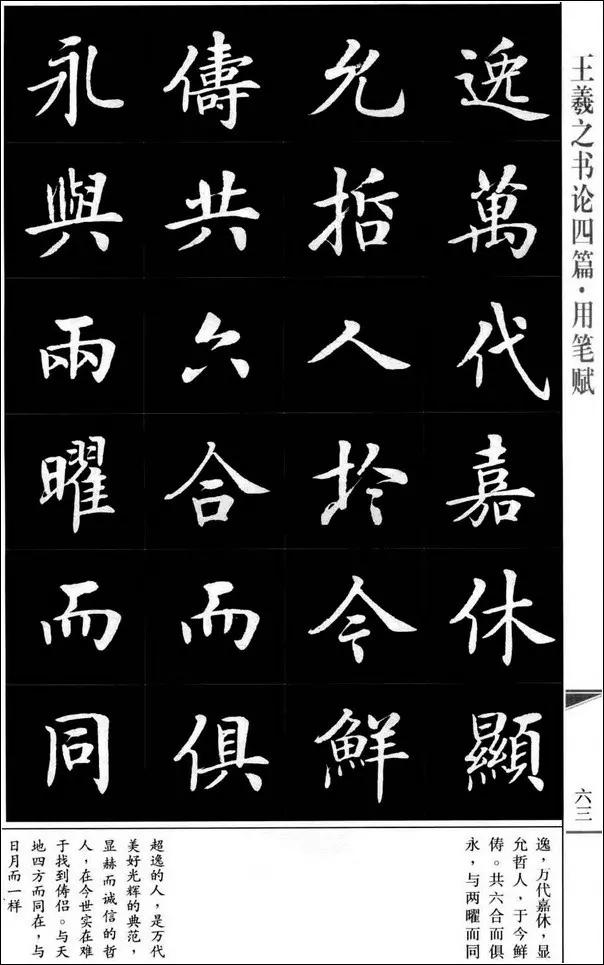 王羲之书论四篇·用笔赋
六三
逸萬代嘉休顯
允哲人於今鮮
儔共六合而俱
永與兩曜而同
逸，万代嘉休，显
允哲人，于今鲜
俦。共六合而俱
永，与两曜而同
超逸的人，是万代
美好光辉的典范，
显赫而诚信的哲
人，在今世实在难
于找到俦侣。与天
地四方而同在，与
日月而一样